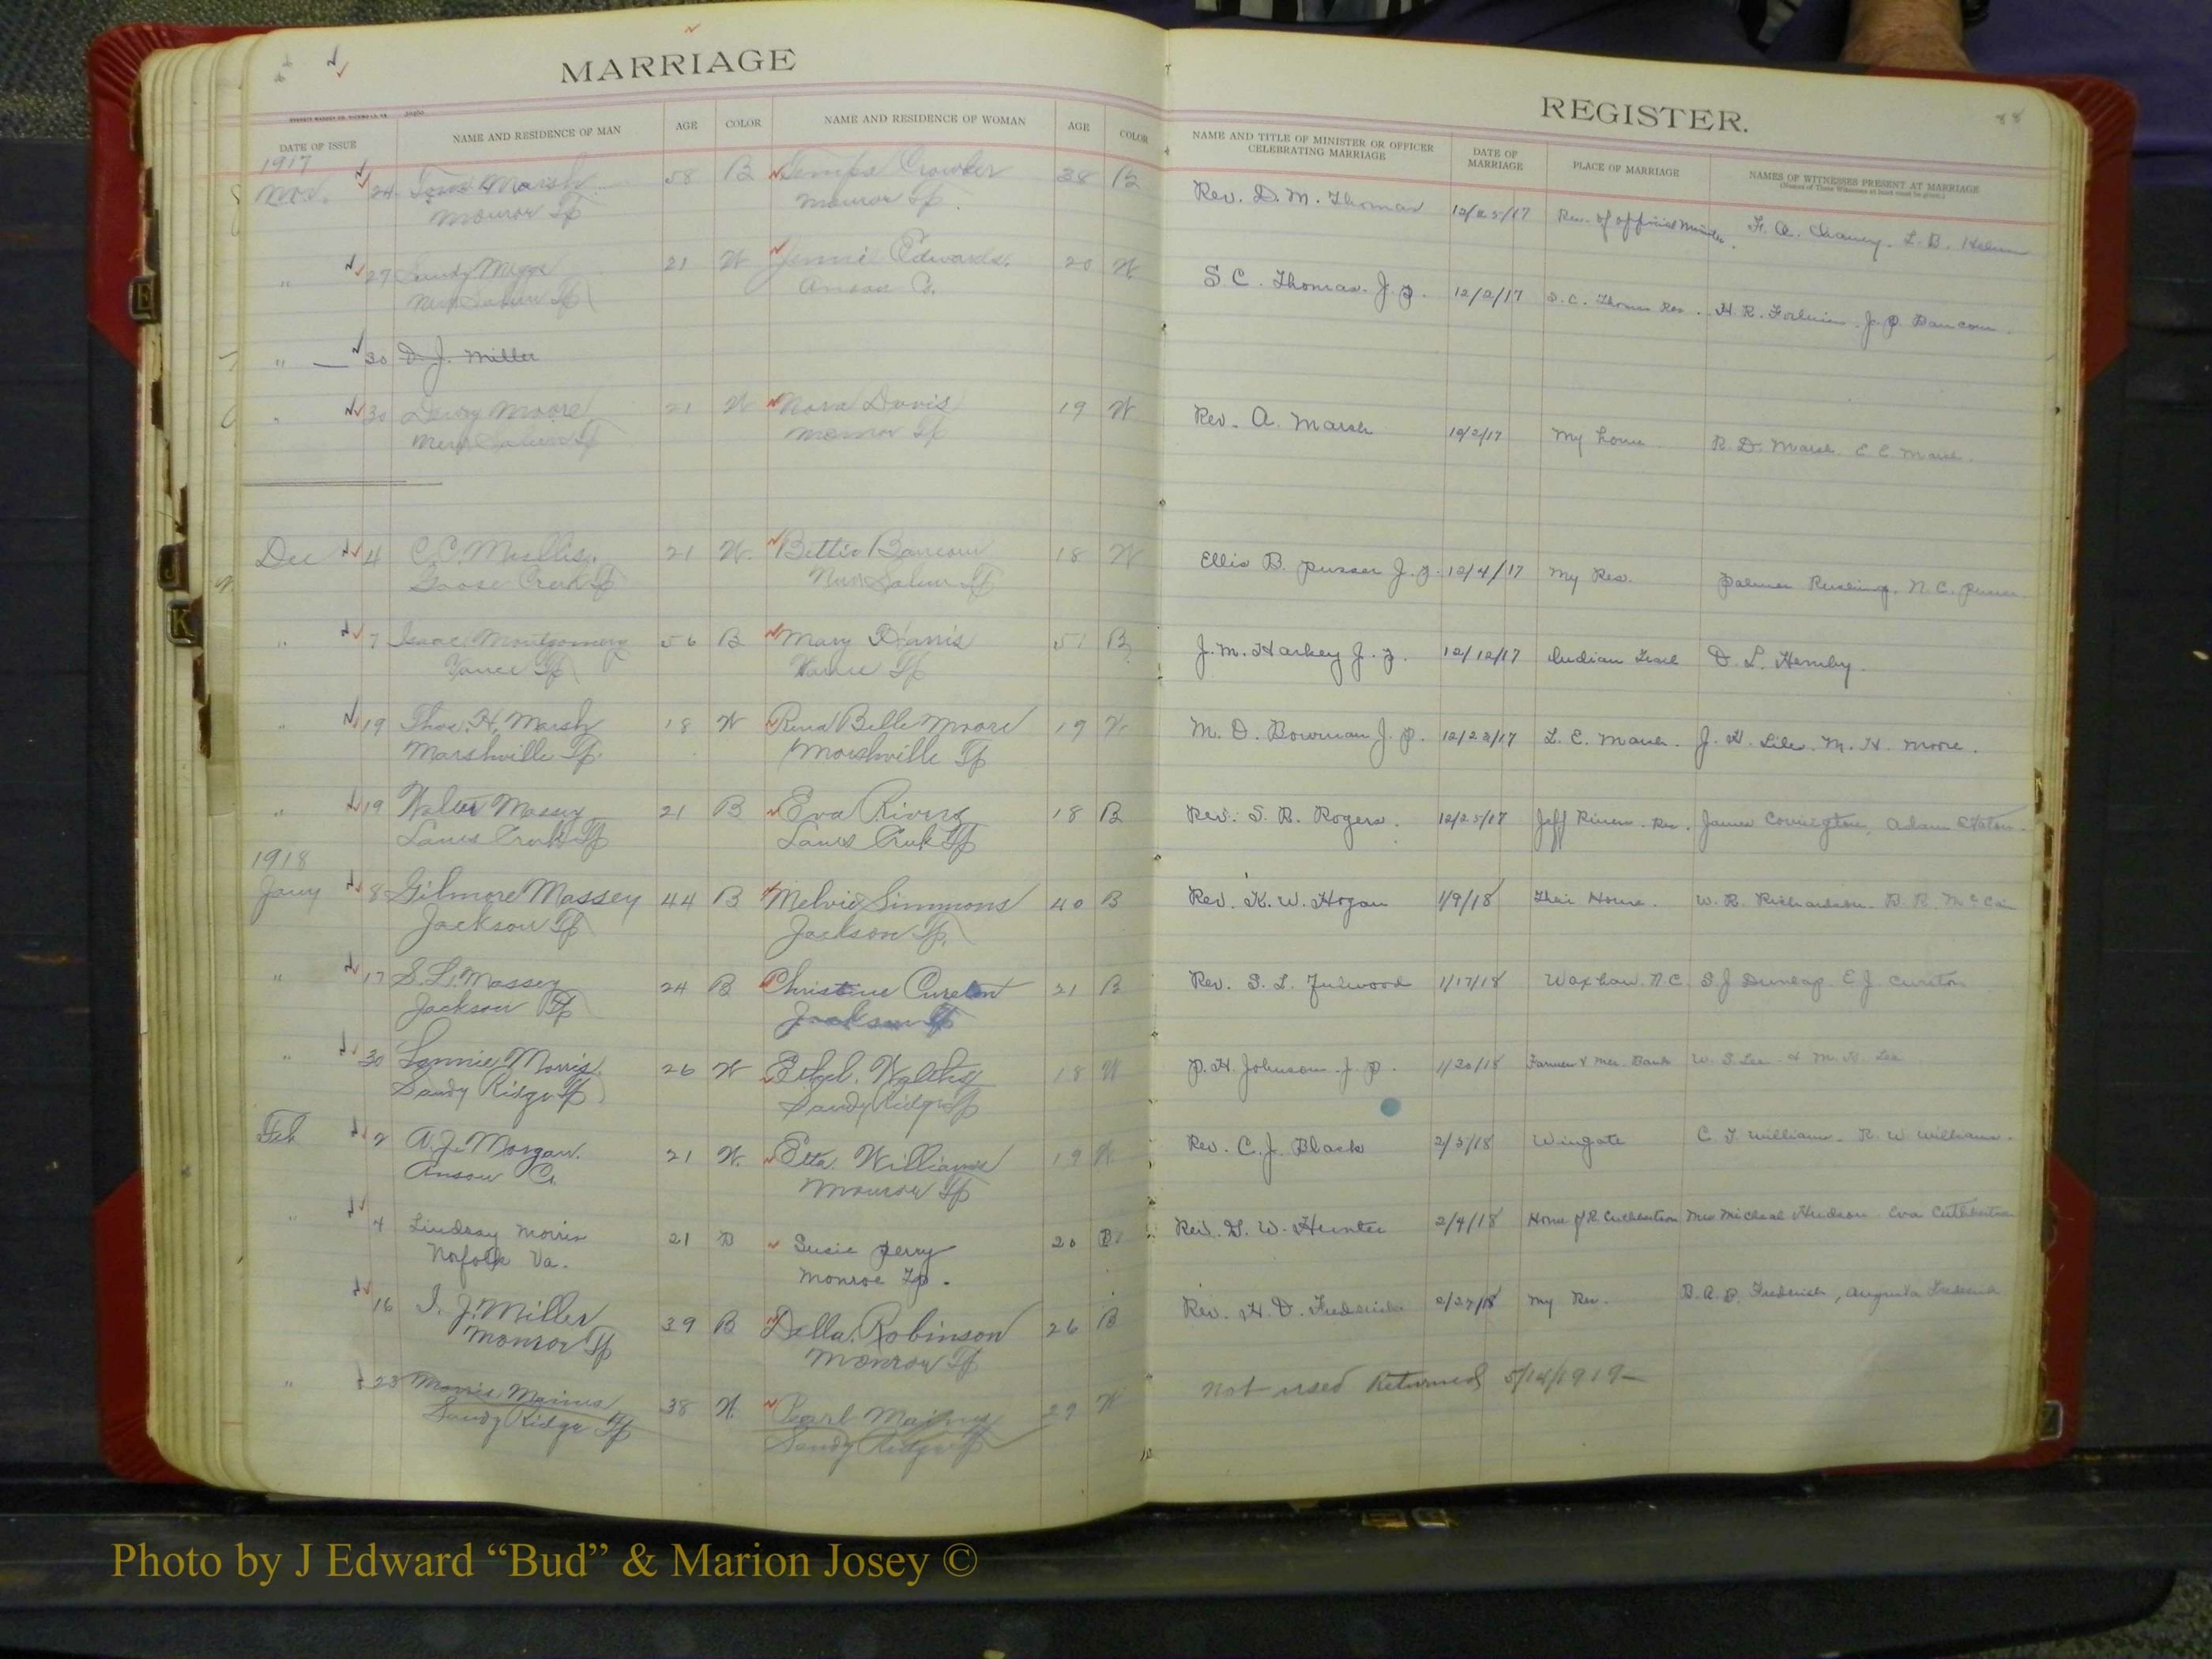 MARRIAGE
REGISTER.
DATE OF ISSUE
NAME AND RESIDENCE OF MAN
AGE
COLOR
NAME AND RESIDENCE OF WOMAN
AGE
COLOR
NAME AND TITLE OF MINISTER OR OFFICER
CELEBRATING MARRIAGE
DATE OF
MARRIAGE
PLACE OF MARRIAGE
NAMES OF WITNESSES PRESENT AT MARRIAGE
1917
Nov. 24 Marsh 58 B Crowder 38 B Rev. D. M. Thomas Res. of
Monroe Tp Monroe Tp.
" 27 Meggs 21 W Jennie Edwards 20 W S. C. Thomas. J. P. 12/2/17 S. C. Thomas Res. H. R.
New Salem Tp Anson Co.
" 30 D. J. Miller
" 30 Moore 21 W Nora Davis 19 W Rev. A. Marsh 12/2/17 My home R. D. Marsh. E. E. Marsh.
New Salem Tp Monroe Tp
Dec 4 C. C. Mullis. 21 W. Bettie Baucom 18 W Ellis B. Pusser J. P. 12/4/17 My Res. N. C. Pusser
Goose Creek Tp New Salem Tp
" 7 Isaac Montgomery 56 B Mary Harris 51 B J. M. Harkey J. P. 12/12/17 Indian Trail D. L. Hemby.
Vance Tp Vance Tp
" 19 Thos. H. Marsh 18 W Rena Belle Moore 19 W M. D. Bowman J. P. 12/23/17 L. E. Marsh. M. H. Moore.
Marshville Tp. Marshville Tp
" 19 Walter Massey 21 B Eva Rivers 18 B Rev. S. R. Rogers. 12/25/17 Jeff Rivers. Res. James Covington, Adam Staton.
Lanes Creek Tp Lanes Creek Tp
1918
Jany 8 Gilmore Massey 44 B Melvie Simmons 40 B Rev. K. W. Hogan 1/9/18 Their Home. W. R. Richardson. B. R. McCain
Jackson Tp Jackson Tp.
" 17 S. L. Massey 24 B Christine Cureton 21 B Rev. S. L. Fulwood 1/17/18 Waxhaw. N C S J Dunlap. E J Cureton
Jackson Tp Jackson Tp
" 30 Lonnie Morris 26 W Ethel. 18 W P. H. Johnson. J. P. 1/30/18 Farmer & Mer. Bank W. S. Lee & M. K. Lee
Sandy Ridge Tp Sandy Ridge Tp
Feb 2 A. J. Morgan. 21 W. Etta. Williams 19 W Rev. C. J. Black 2/3/18 Wingate C. T. Williams. R. W. Williams.
Anson Co. Monroe Tp
" 4 Lindsay Morris 21 B Susie Perry 20 B Rev. G. W. Hunter 2/4/18 Home of R. Cuthbertson Mrs Michael Hudson. Eva Cuthbertson
Norfolk Va. Monroe Tp.
16 I. J. Miller 39 B Della. Robinson 26 B Rev. H. D. Frederick 2/27/18 My Res. B. A. B. Frederick, Augusta Frederick
Monroe Tp Monroe Tp
" 23 Morris Mainus 38 W. Pearl 29 W Not used Returned 5/14/1919
Sandy Ridge Tp Sandy Ridge Tp
E
J
K
Photo by J Edward “Bud” & Marion Josey ©